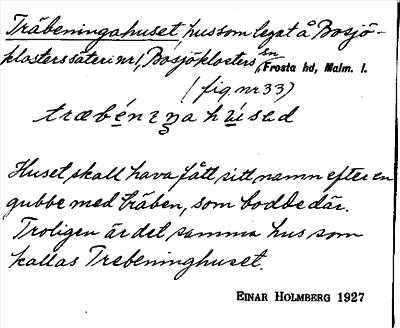 Träbeningahuset, hus som legat å Bosjö-
klosters säteri nr 1, Bosjöklosters sn, Frosta hd, Malm. l.
(fig nr 33)
træbénıŋa húsəd
Huset skall hava fått sitt namn efter en
gubbe med träben, som bodde där.
Troligen är det samma hus som
kallas Trebeninghuset.
EINAR HOLMBERG 1927